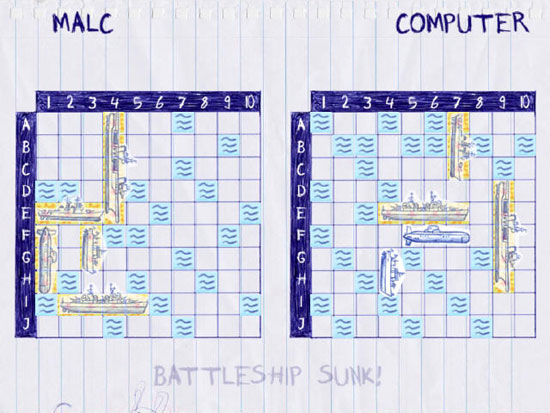 MALC
COMPUTER
1 2 3 4 5 6 7 8 9 10
A
B
C
D
E
F
G
H
I
J
1 2 3 4 5 6 7 8 9 10
A
B
C
D
E
F
G
H
I
J
BATTLESHIP SUNK!